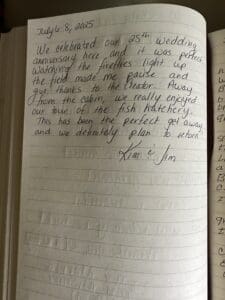 July 6-8, 2025
We celebrated our 25th wedding
anniversary here and it was perfect.
Watching the fireflies light up
the field made me pause and
give thanks to the Creator. Away
from the cabin, we really enjoyed
our tour of the fish hatchery.
This has been the perfect get away
and we definitely plan to return.
Kim & Jim